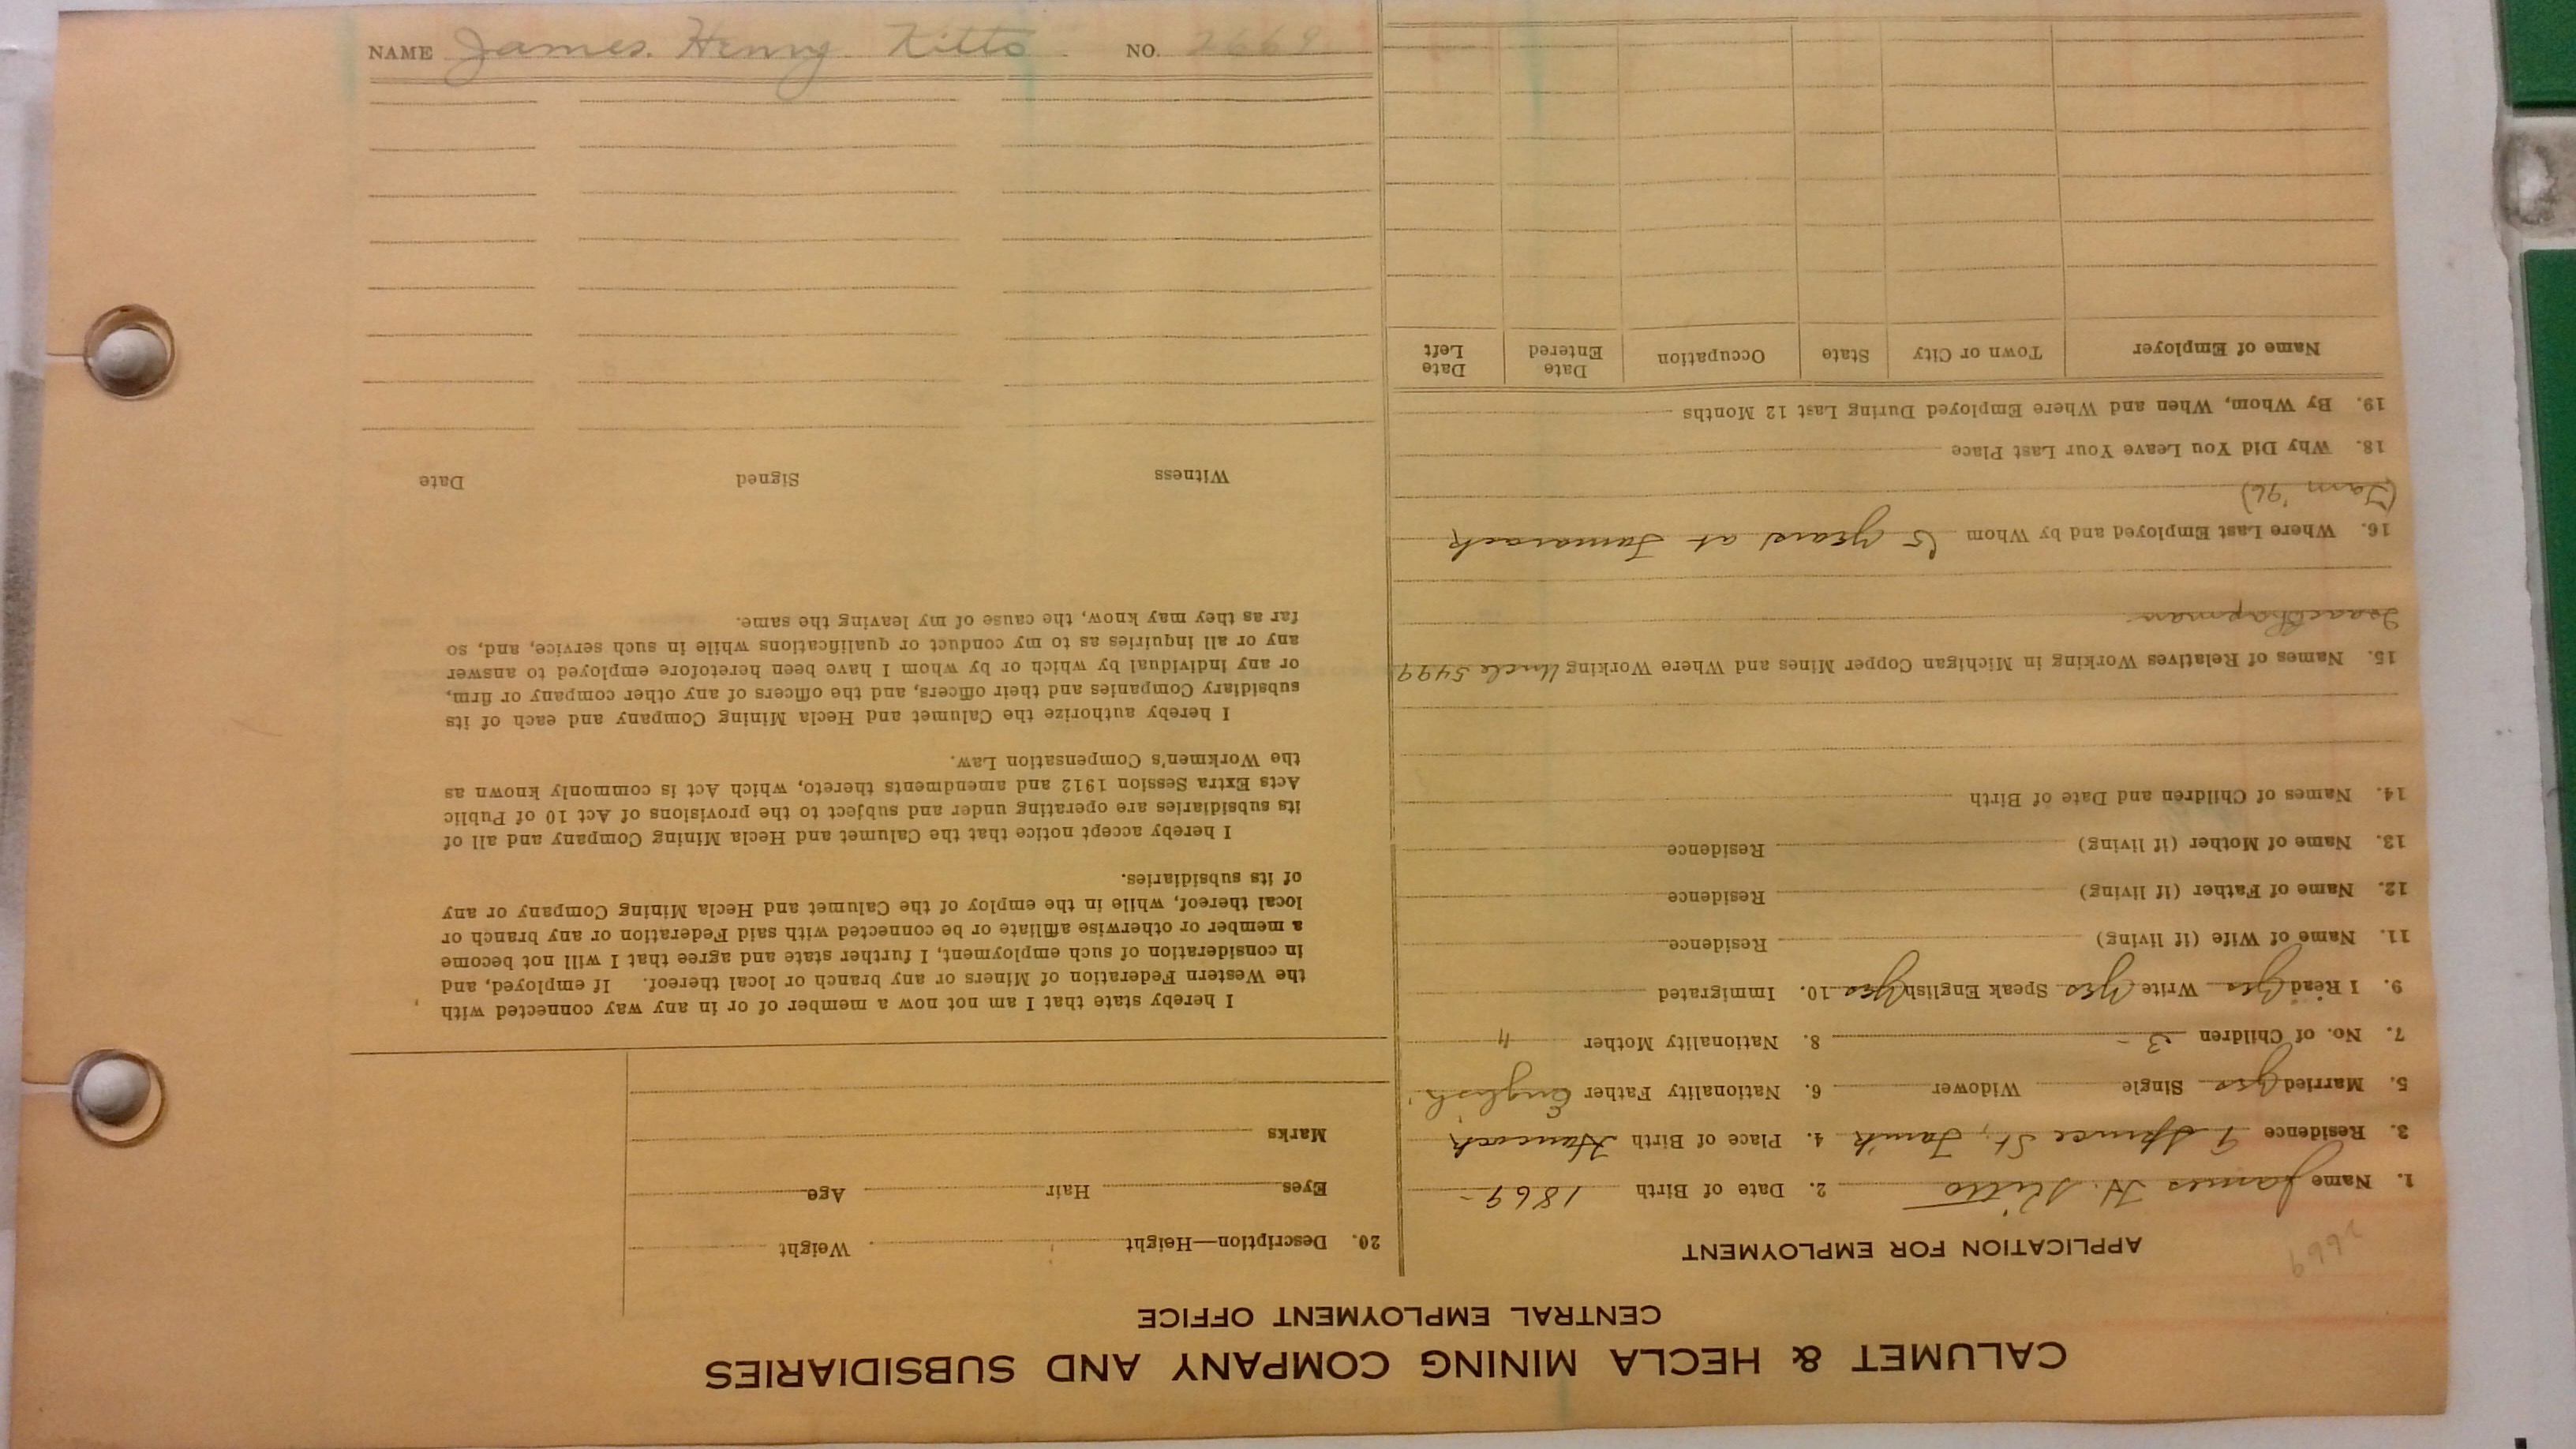 CALUMET & HECLA MINING COMPANY AND SUBSIDIARIES
CENTRAL EMPLOYMENT OFFICE
2669
APPLICATION FOR EMPLOYMENT
1. Name James H. Kitto 2. Date of Birth 1869-
3. Residence Spruce St, Tamk 4. Place of Birth Hancock
5. Married Yes Single Widower 6. Nationality Father English
7. No. of Children 3 - 8. Nationality Mother "
9. I Read Yes Write Yes Speak English Yes 10. Immigrated
11. Name of Wife (if living) Residence
12. Name of Father (if living) Residence
13. Name of Mother (if living) Residence
14. Names of Children and Date of Birth
15. Names of Relatives Working in Michigan Copper Mines and Where Working Uncle 5499
Isaac Chapman
16. Where Last Employed and by Whom 5 years at Tamarack
18. Why Did You Leave Your Last Place
19. By Whom, When and Where Employed During Last 12 Months
Name of Employer Town or City State Occupation Date Entered Date Left
20. Description—Height Weight
Eyes Hair Age
Marks
I hereby state that I am not now a member of or in any way connected with
the Western Federation of Miners or any branch or local thereof. If employed, and
in consideration of such employment, I further state and agree that I will not become
a member or otherwise affiliate or be connected with said Federation or any branch or
local thereof, while in the employ of the Calumet and Hecla Mining Company or any
of its subsidiaries.
I hereby accept notice that the Calumet and Hecla Mining Company and all of
its subsidiaries are operating under and subject to the provisions of Act 10 of Public
Acts Extra Session 1912 and amendments thereto, which Act is commonly known as
the Workmen's Compensation Law.
I hereby authorize the Calumet and Hecla Mining Company and each of its
subsidiary Companies and their officers, and the officers of any other company or firm,
or any individual by which or by whom I have been heretofore employed to answer
any or all inquiries as to my conduct or qualifications while in such service, and, so
far as they may know, the cause of my leaving the same.
Witness Signed Date
NAME James Henry Kitto NO. 2669